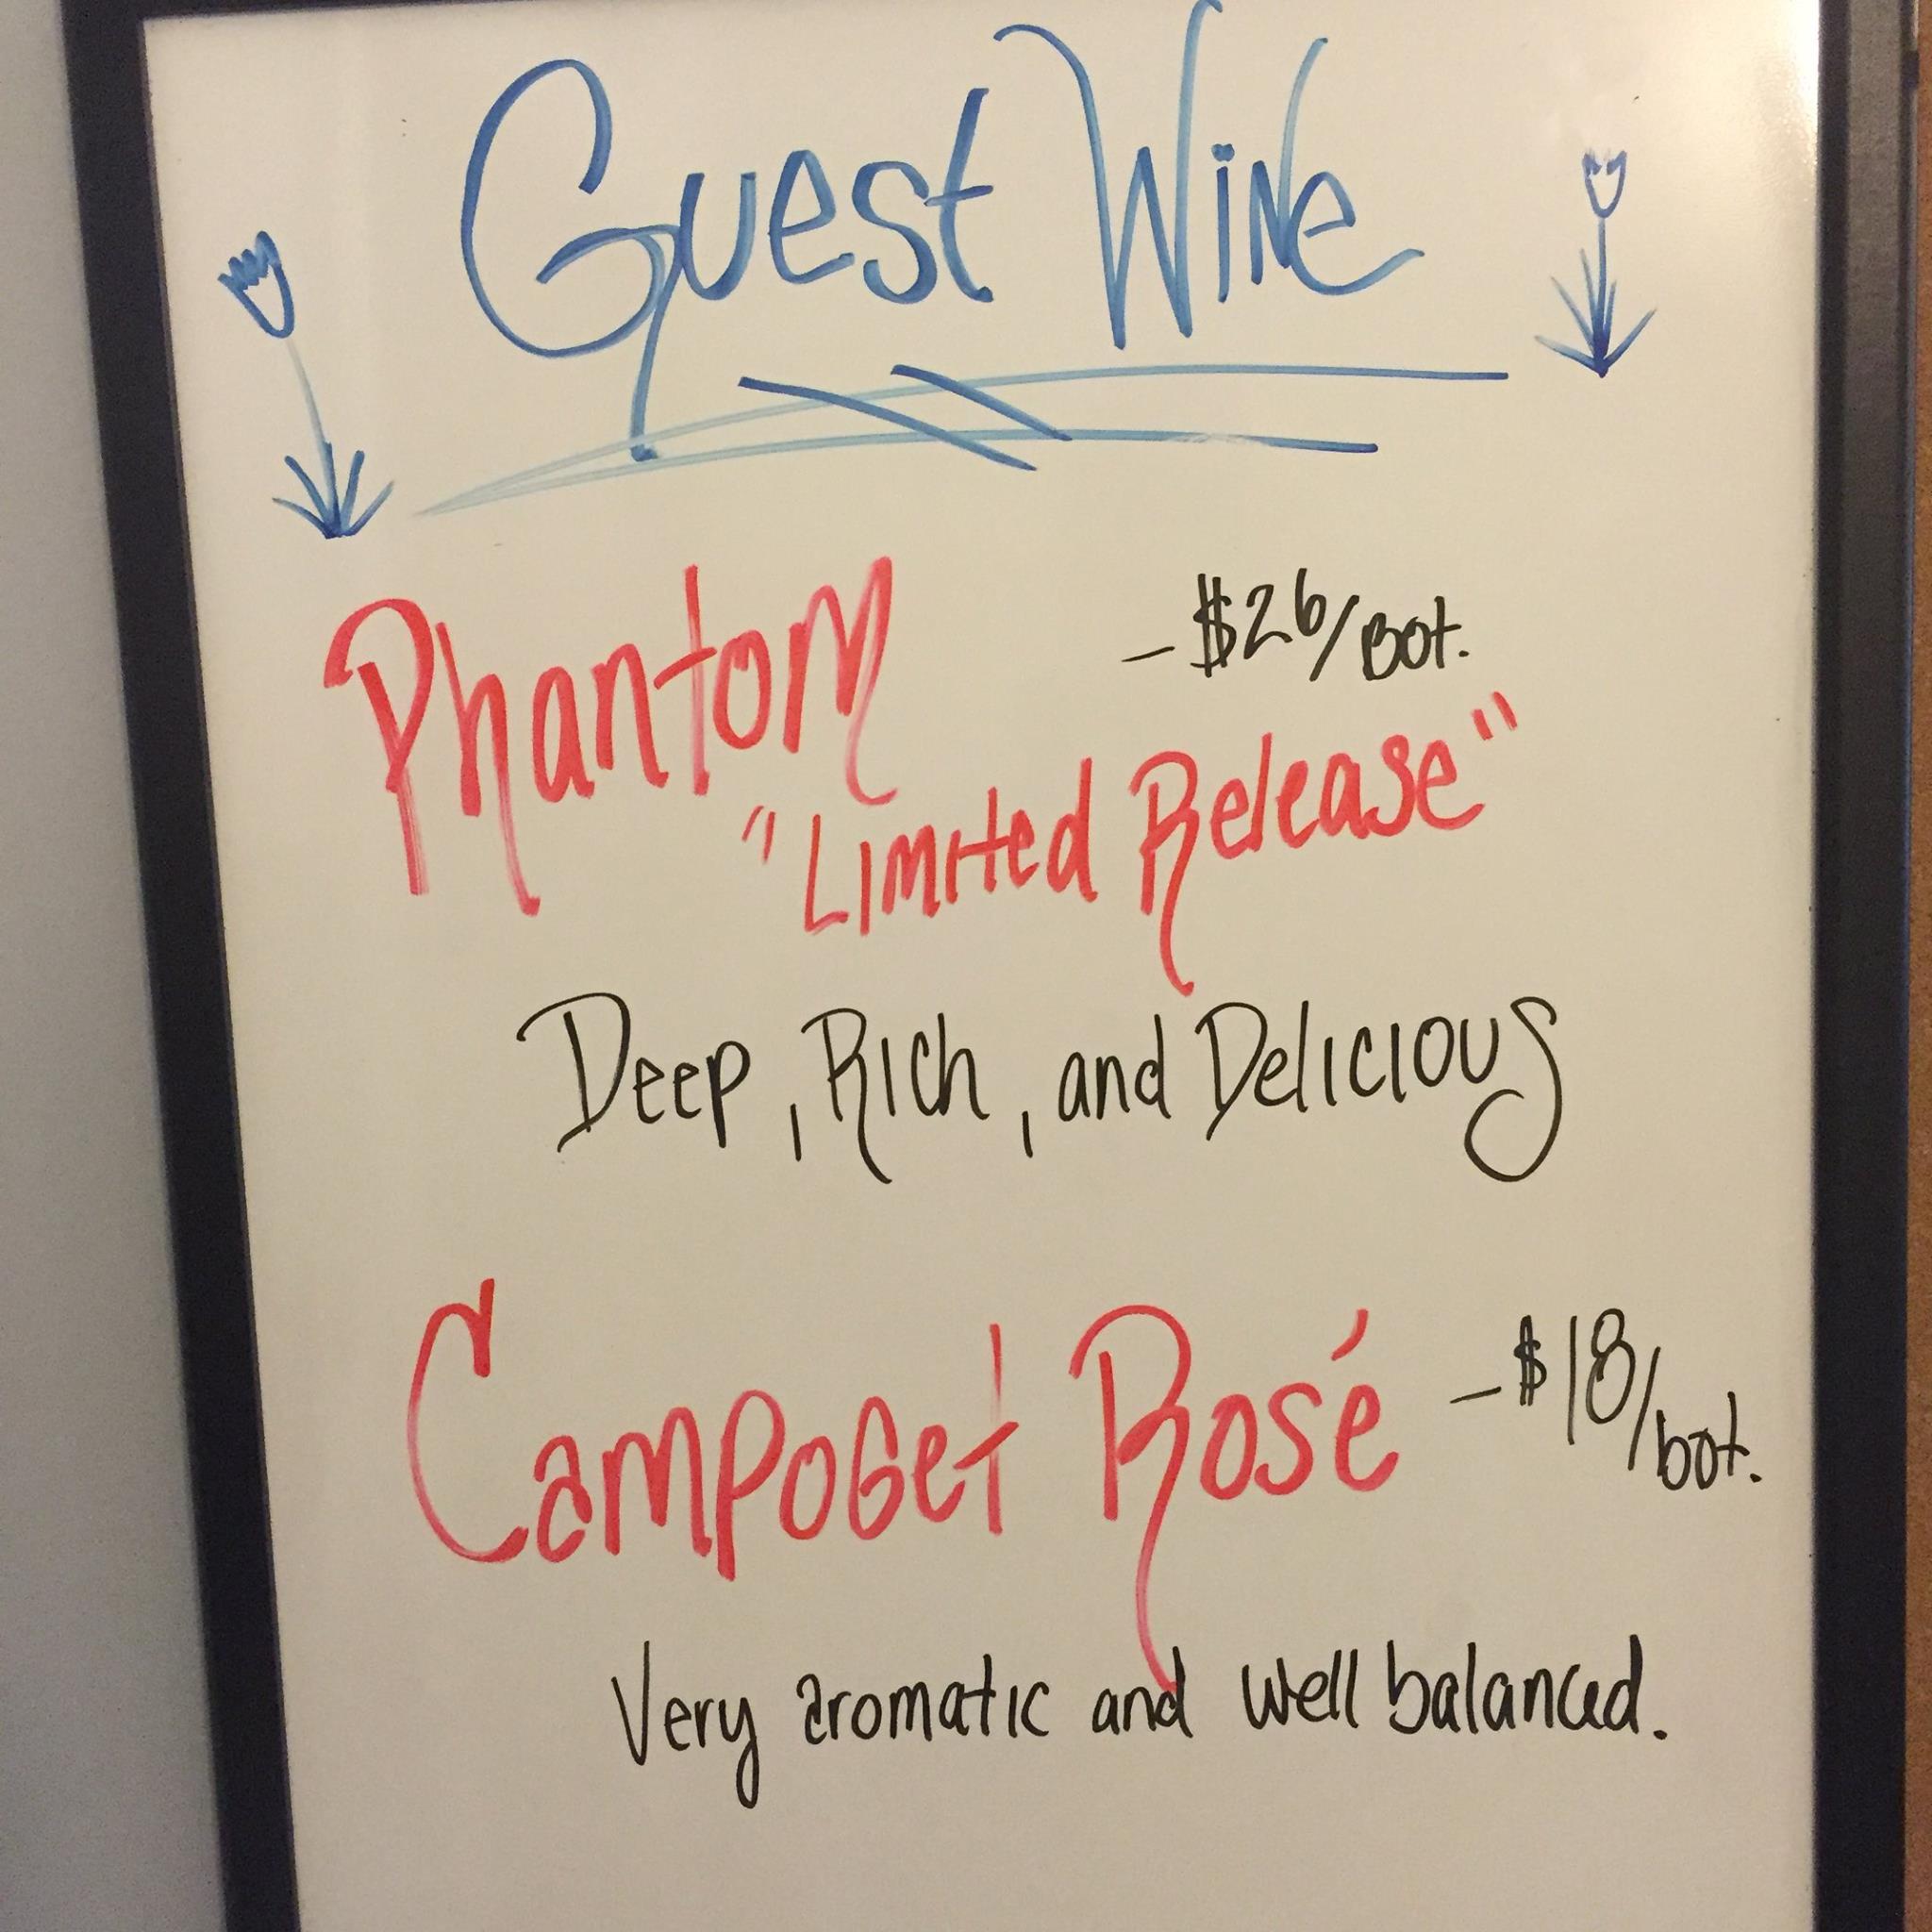 Guest Wine
Phantom - $26/Bot.
"Limited Release"
Deep, Rich, and Delicious
Campoget Rosé - $18/bot.
Very aromatic and well balanced.